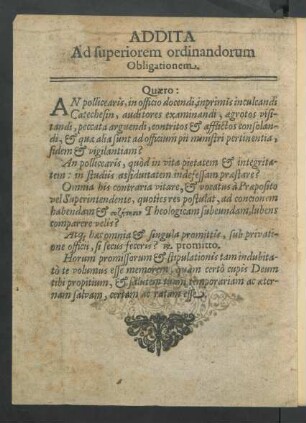 ADDITA
Ad superiorem ordinandorum
Obligationem.
Quæro:
AN pollicearis, in officio docendi, inprimis inculcandi
Catechesin, auditores examinandi, ægrotos visi-
tandi, peccata arguendi, contritos & afflictos consolan-
di, & quæ alia sunt ad officium pii ministri pertinentia,
fidem & vigilantiam?
An pollicearis, quòd in vita pietatem & integrita-
tem: in studiis assiduitatem indefessam præstare?
Omnia his contraria vitare, & vocatus à Præposito
vel Superintendente, quoties res postulat, ad concionem
habendam & Theologicam subeundam, lubens
comparere velis?
Atq; hæc omnia & singula promittis, sub privati-
one officii, si secus feceris? ꝶ. promitto.
Horum promissorum & stipulationis tam indubita-
tò te volumus esse memorem, quàm certò cupis Deum
tibi propitium, & salutem tuam temporariam ac æter-
nam salvam, certam ac ratam esse.